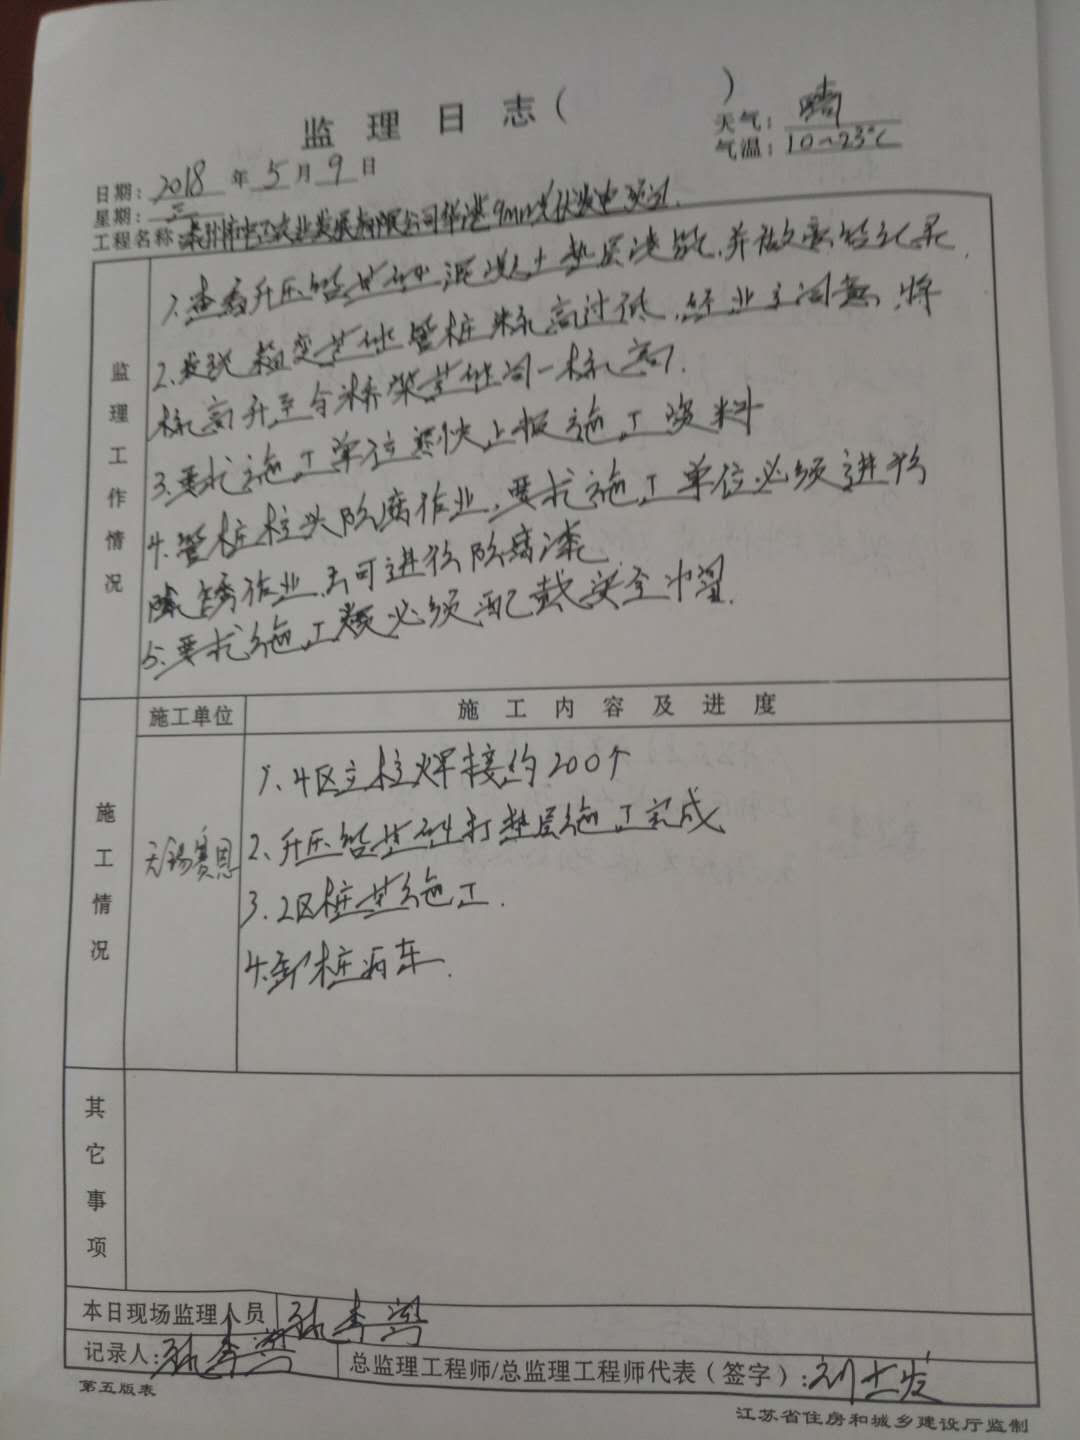 监理日志( )
天气: 晴
气温: 10~23℃
日期: 2018年5月9日
星期: 三
工程名称 泰州市 农业发展有限公司华港9mw光伏发电项目.
监理工作情况
1.查看升压站基础混凝土垫层浇筑.并做旁站记录.
2.发现箱变基础管桩标高过低.经业主同意.将
标高升至与桥架基础同一标高.
3.要求施工单位尽快上报施工资料
4.管桩桩头防腐作业.要求施工单位必须进行
除锈作业.方可进行防腐漆
5.要求施工 必须配戴安全帽.
施工情况
施工单位
施工内容及进度
无锡赛恩
1.4区立柱焊接约200个
2.升压站基础打垫层施工完成
3.2区桩基施工.
4.卸桩两车.
其它事项
本日现场监理人员
记录人:
总监理工程师/总监理工程师代表(签字):
第五版表
江苏省住房和城乡建设厅监制